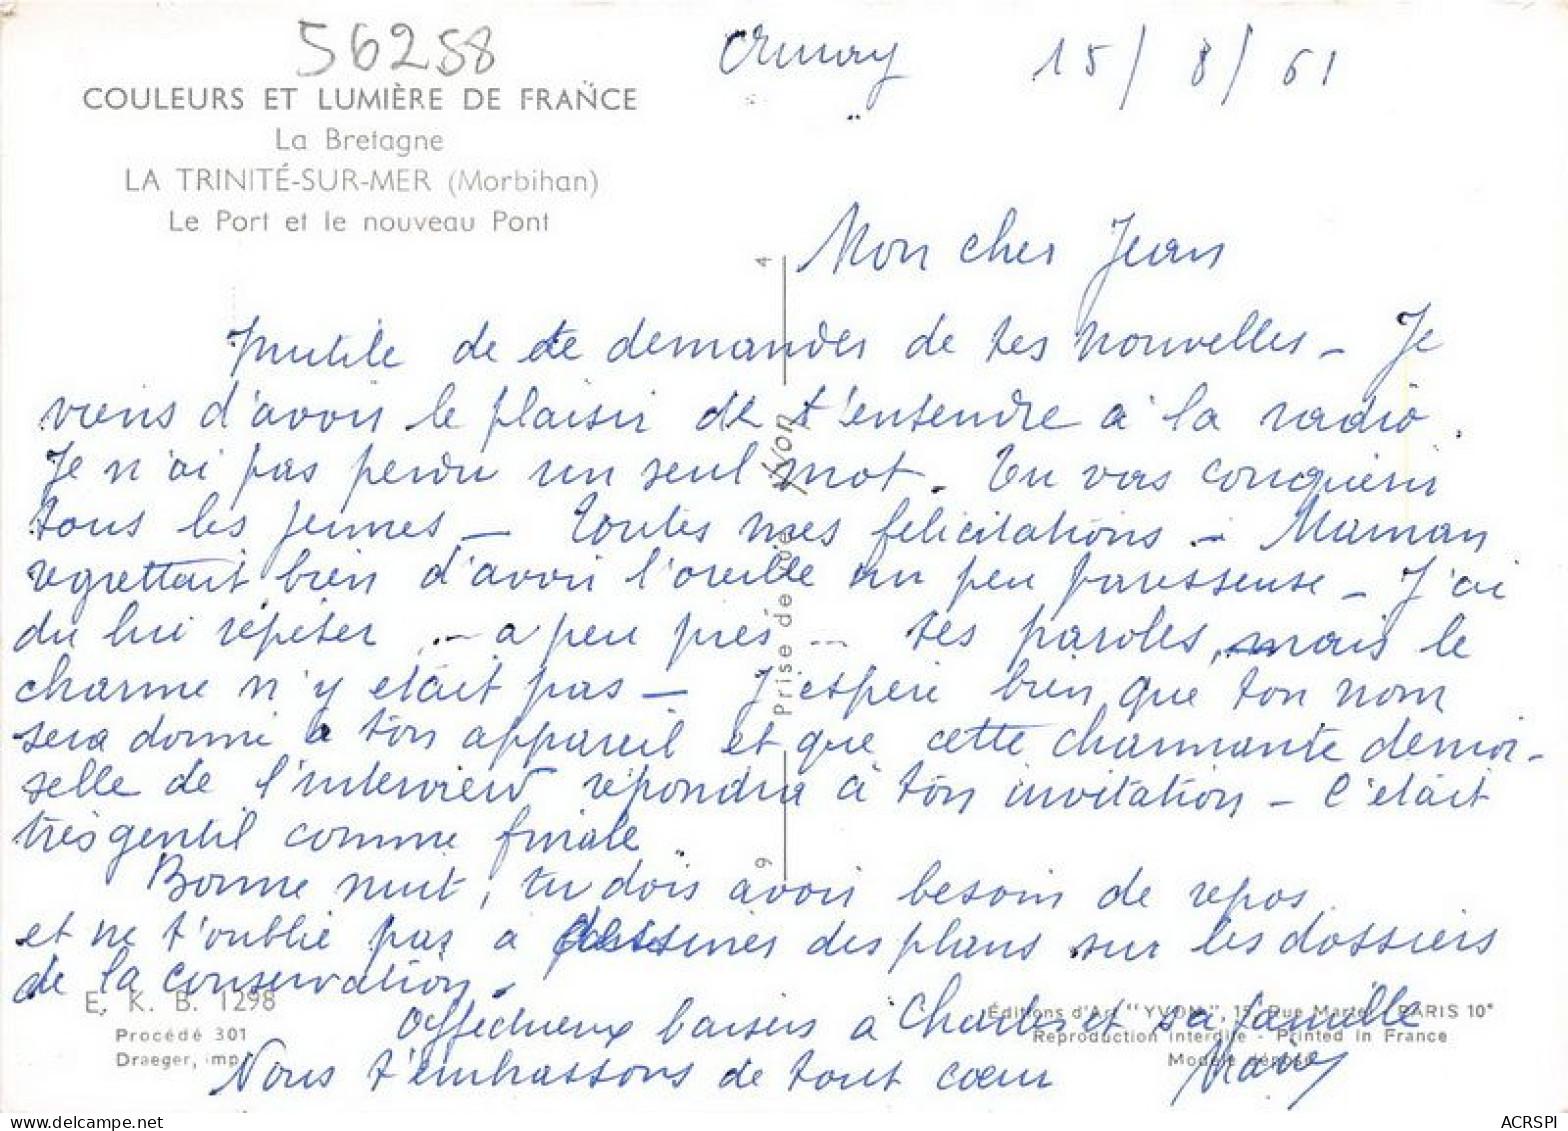 56258
15/8/61
COULEURS ET LUMIÈRE DE FRANCE
La Bretagne
LA TRINITÉ-SUR-MER (Morbihan)
Le Port et le nouveau Pont
Mon cher Jean
Inutile de te demander de tes nouvelles - Je
viens d'avoir le plaisir de t'entendre à la radio.
Je n'ai pas perdu un seul mot - Tu vas conquérir
tous les jeunes - Toutes mes felicitations - Maman
regrettait bien d'avoir l'oreille un peu paresseuse - J'ai
du lui répéter - a peu près - tes paroles, mais le
charme n'y etait pas - J'espère bien que ton nom
sera donné à ton appareil et que cette charmante demoi-
selle de l'interview répondra à ton invitation - C'était
très gentil comme finale
Bonne nuit, tu dois avoir besoin de repos
et ne t'oublie pas a dessiner des plans sur les dossiers
de la conservation.
Affectueux baisers a Charles et sa famille
Nous t'embrassons de tout cœur
4
Prise de vue Yvon
9
E. K. B. 1298
Procédé 301
Draeger, imp.
Éditions d'Art "YVON", 15, Rue Martel - PARIS 10e
Reproduction interdite - Printed in France
Modèle déposé
ACRSPI